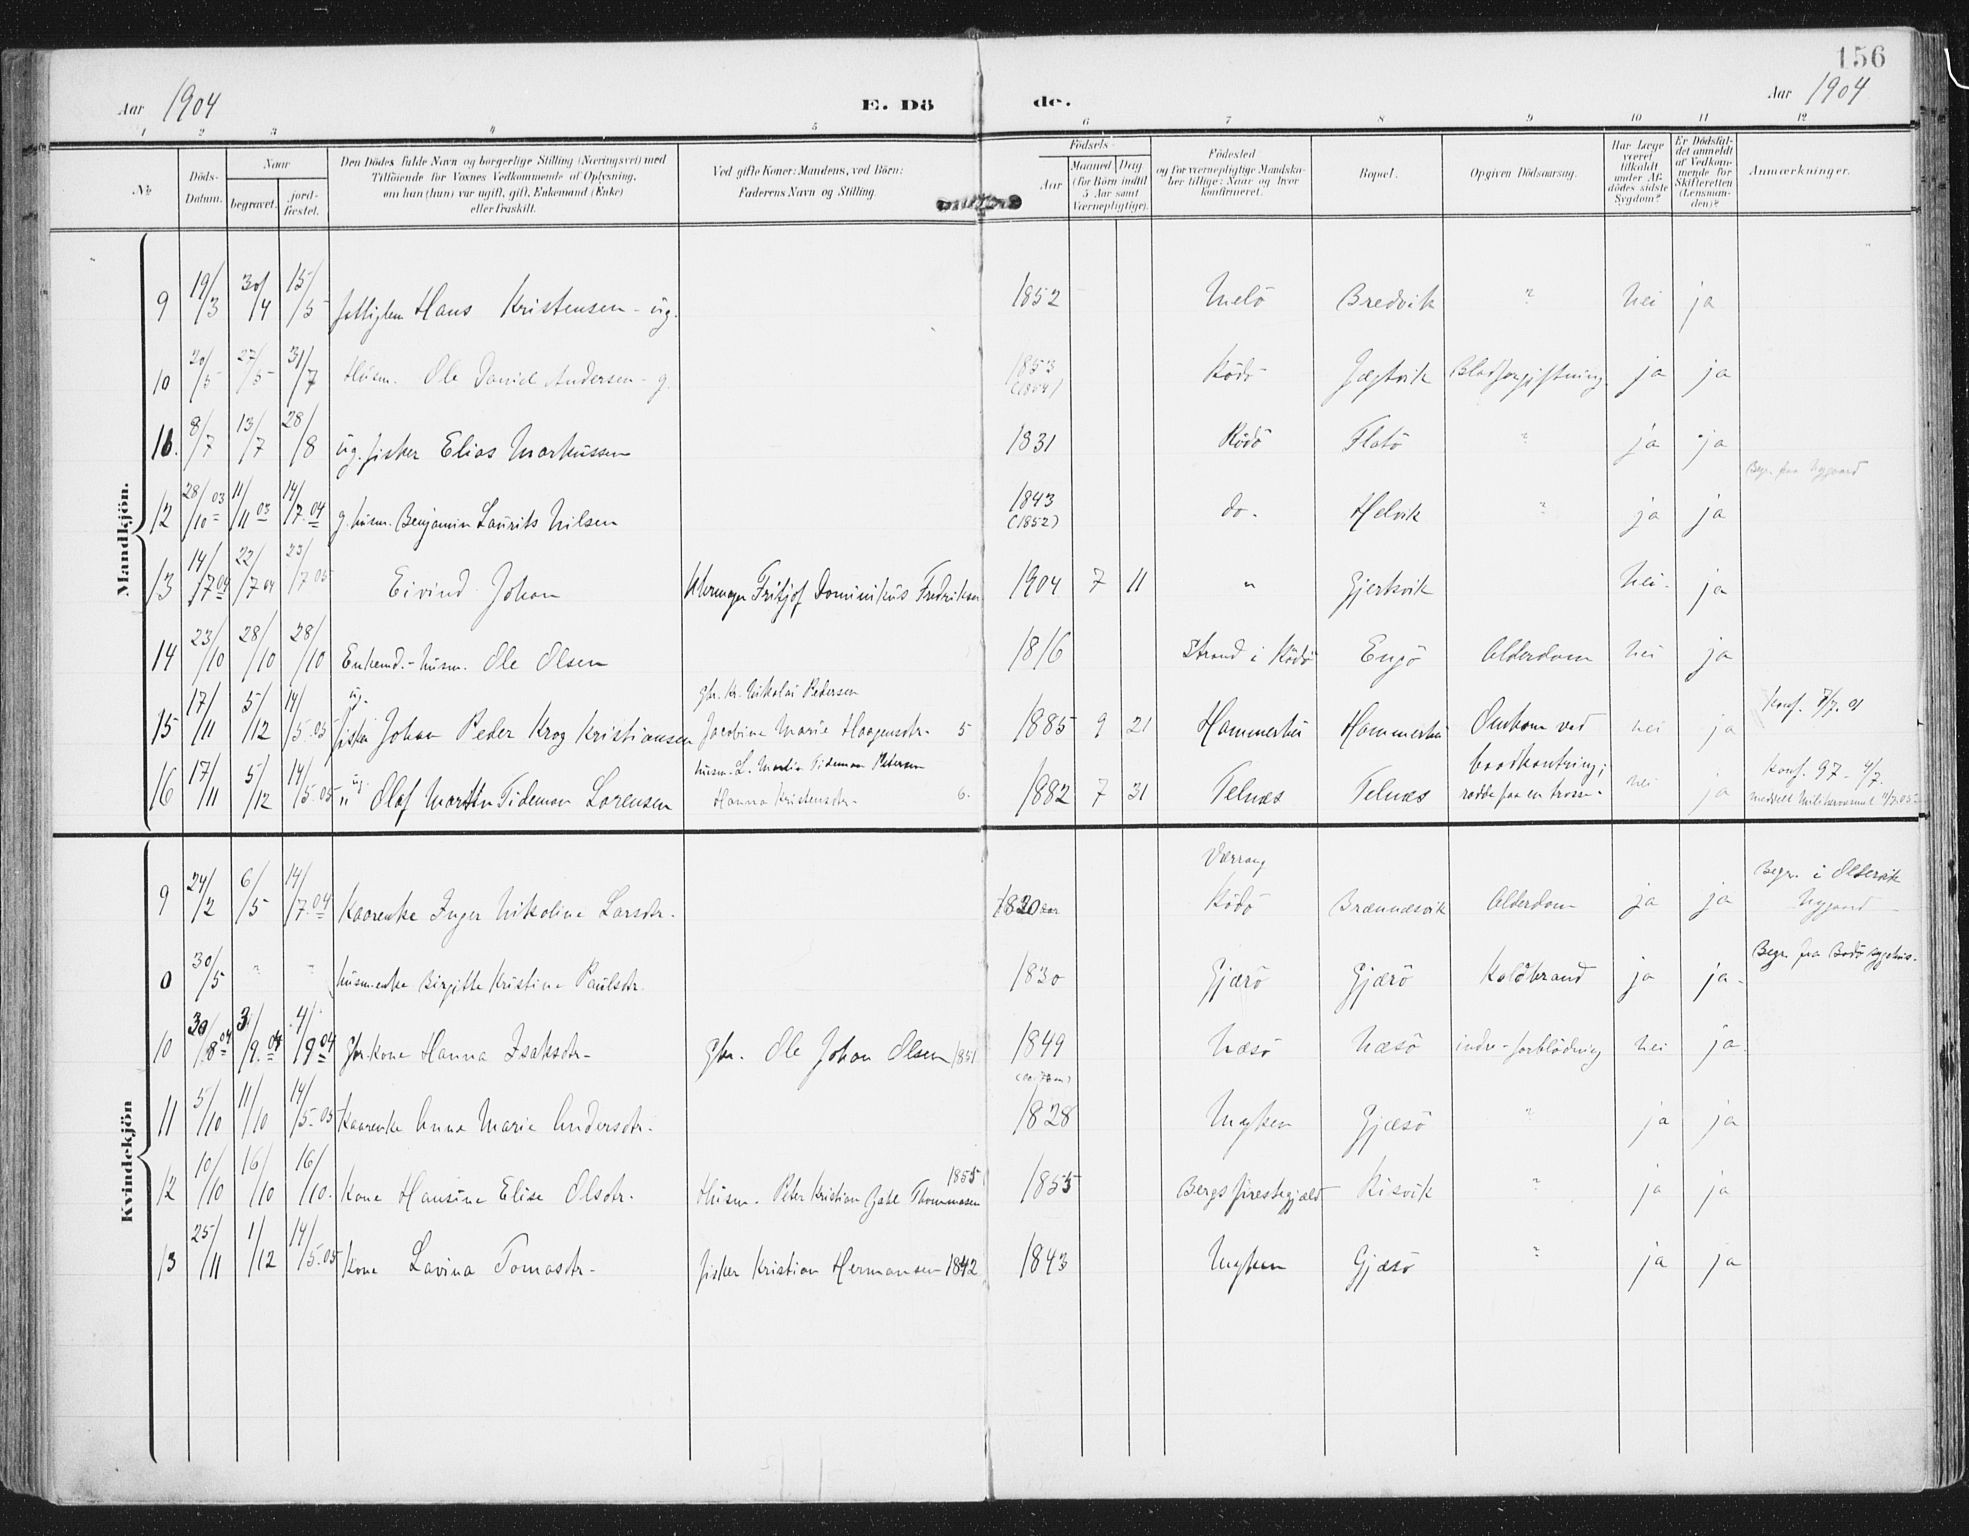 156
Aar 1904
E. Dö de.
Aar 1904
1 2 3 4 5 6 7 8 9 10 11 12
No.
Döds-Datum.
Naar
begravet.
jord-fæstet.
Den Dödes fulde Navn og borgerlige Stilling (Næringsvei) med
Tilföiende for Voxnes Vedkommende af Oplysning,
om han (hun) var ugift, gift, Enkemand (Enke)
eller fraskilt.
Ved gifte Koner: Mandens, ved Börn:
Faderens Navn og Stilling.
Födsels-
Aar
Maaned Dag
(for Börn indtil
5 Aar samt
Værnepligtige).
Födested
og for værnepligtige Mandska-
ber tillige: Naar og hvor
konfirmeret.
Bopæl.
Opgiven Dödsaarsag.
Har Læge
været
tilkaldt
under Af-
dödes sidste
Sygdom?
Er Dödsfal-
det anmeldt
af Vedkom-
mende for
Skifteretten
(Lensman-
den)?
Anmærkninger.
Mandkjön.
9 19/3 30/4 15/5 Hans Kristensen - ug. 1852 Melö Bredvik ? Nei ja
10 20/5 27/5 31/7 Husm. Ole Daniel Andersen - g. 1853 (1854) Rödö Jægtvik Blodforgiftning ja ja
8/7 13/7 28/8 ug. fisker Elias Markussen 1831 Rödö Flatö ? ja ja
Begr. fra Nygaard
12 28/10 03 11/11 03 14/7.04 g. husm. Benjamin Laurits Nilsen 1843 (1852) do. Helvik ? ja ja
13 14/7 04 22/7 04 23/7 05 Eivind Johan Fritjof Dominikus Fredriksen 1904 7 11 " Gjertvik Nei ja
14 23/10 28/10 28/10 Enkemd. - husm. Ole Olsen 1816 Strand i Rödö Engö Alderdom nei ja
15 17/11 5/12 14/5.05 ug. fisker Johan Peder Krog Kristiansen gbr. Kr. Nikolai Pedersen
Jacobine Marie Haagensdtr. 5 1885 9 21 Hammerhei Hammerhei Omkom ved nei ja Konf. 7/7. 01
16 17/11 5/12 14/5.05 " ug. Olaf Martin Tideman Lorensen husm. L. Martin Tideman Petersen
Hanna Kristensdtr. 6. 1882 7 31 Telnæs Telnæs baadkantring; nei ja Konf. 97 - 4/7.
Kvindekjön
9 24/2 6/5 14/7.04 Kaarenke Inger Nikoline Larsdtr. Værang
Rödö Brænnesvik Alderdom ja ja Begr. i Oldervik
Nygaard
0 30/5 " " husm.enke Birgitte Kristine Paulsdtr. 1830 Gjærö Gjærö Koldbrand ja ja. Begr. fra Bodö sygehus.
10 30/8 04 3/9.04 4/9 04 Gbr.kone Hanna Isaksdtr. gbr. Ole Johan Olsen 1851 1849 Næsö Næsö indre forblödning nei ja
11 5/10 11/10 14/5.05 Kaarenke Anna Marie Andersdtr. 1828 Meløen Gjæsö ? ja ja
12 10/10 16/10 16/10. Kone Hansine Elise Olsdtr. Husm. Peter Kristian Thommasen 1855 1855 Bergs præstegjæld Risvik ? ja ja
13 25/11 1/12 14/5.05 Kone Lavina Tomasdtr. fisker Kristian Hermansen 1842 1843 Gjæsö ? ja ja